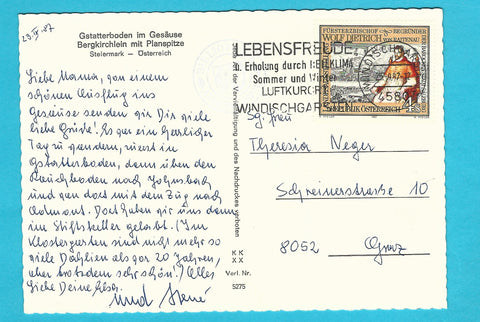 23.IX.87
Gstatterboden im Gesäuse
Bergkirchlein mit Planspitze
Steiermark – Österreich
Liebe Mama, von einem
schönen Ausflug ins
Gesäuse senden wir Dir viele
liebe Grüße! Es war ein herrlicher
Tag zu wandern, zuerst in
Gstatterboden, dann über den
Rauchboden nach Johnsbach
und dann mit dem Zug nach
Admont. Dort haben wir uns dann
im Stiftskeller gelabt. (Im
Klostergarten sind nicht mehr so
viele Dahlien als vor 20 Jahren,
aber trotzdem sehr schön.) Alles
Liebe Deine
und René
der Vervielfältigung und des Nachdruckes verboten
Verl. Nr.
5275
LEBENSFREUDE
u. Erholung durch HEILKLIMA
Sommer und Winter
LUFTKURORT
WINDISCHGARSTEN
4580
FÜRSTERZBISCHOF BEGRÜNDER
WOLF DIETRICH VON RAITENAU
REPUBLIK ÖSTERREICH
Sg. Frau
Theresia Neger
Schreinerstrasse 10
8052 Graz